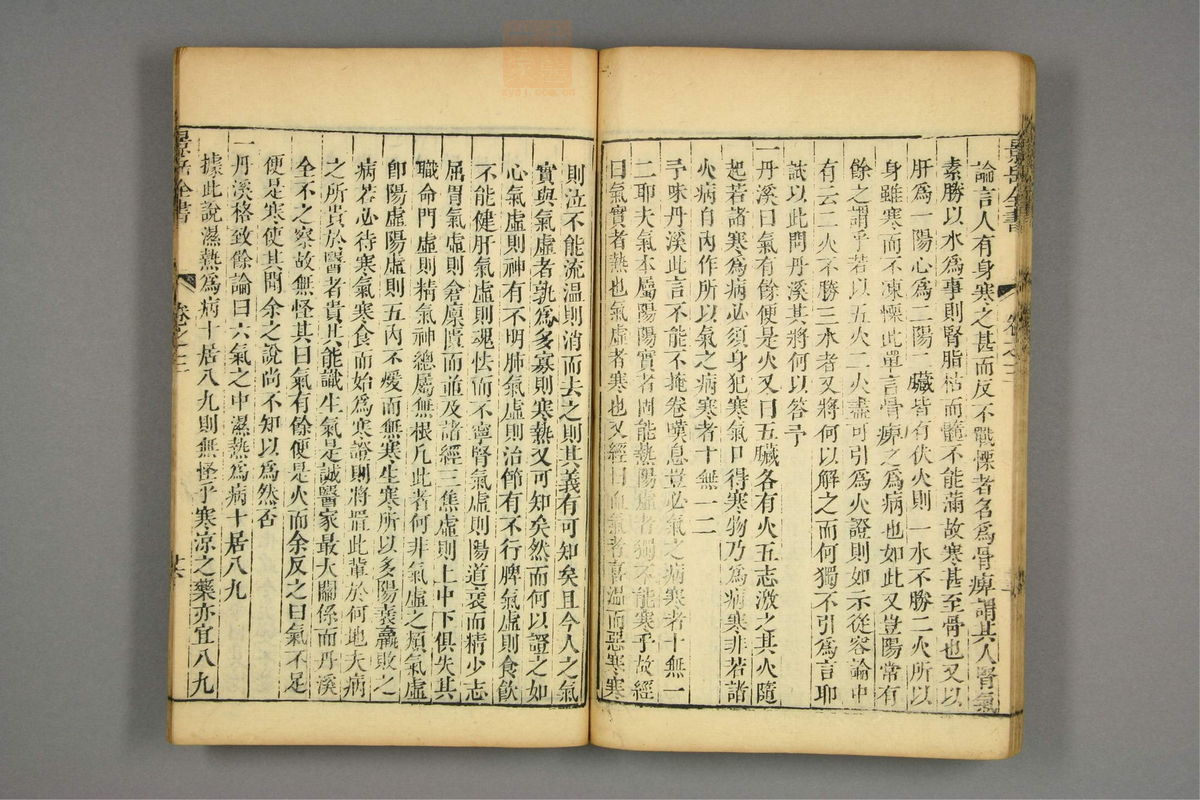 論言人有身寒之甚而反不戰慄者名爲骨痺謂其人腎氣
素勝以水爲事則腎脂枯而髓不能滿故寒甚至骨也又以
肝爲一陽心爲二陽二臟皆有伏火則一水不勝二火所以
身雖寒而不凍慄此單言骨痺之爲病也如此又豈陽常有
餘之謂乎若以五火二火盡可引爲火證則如示從容論中
有云二火不勝三水者又將何以解之而何獨不引爲言耶
試以此問丹溪其將何以答予
一丹溪曰氣有餘便是火又曰五臟各有火五志激之其火隨
起若諸寒爲病必須身犯寒氣口得寒物乃爲病寒非若諸
火病自內作所以氣之病寒者十無一二
予味丹溪此言不能不掩卷嘆息豈必氣之病寒者十無一
二耶夫氣本屬陽陽實者固能熱陽虛者獨不能寒乎故經
曰氣實者熱也氣虛者寒也又經曰血氣者喜溫而惡寒寒
則泣不能流溫則消而去之則其義有可知矣且今人之氣
實與氣虛者孰爲多寡則寒熱又可知矣然而何以證之如
心氣虛則神有不明肺氣虛則治節有不行脾氣虛則食飲
不能健肝氣虛則魂怯而不寧腎氣虛則陽道衰而精少志
屈胃氣虛則倉廩匱而並及諸經三焦虛則上中下俱失其
職命門虛則精氣神總屬無根凡此者何非氣虛之類氣虛
卽陽虛陽虛則五內不煖而無寒生寒所以多陽衰羸敗之
病若必待寒氣寒食而始爲寒證則將置此輩於何地夫病
之所貴於醫者貴其能識生氣是誠醫家最大關係而丹溪
全不之察故無怪其曰氣有餘便是火而余反之曰氣不足
便是寒使其聞余之說尚不知以爲然否
一丹溪格致餘論曰六氣之中濕熱爲病十居八九
據此說濕熱爲病十居八九則無怪乎寒涼之藥亦宜八九
景岳全書
卷之三
卄六